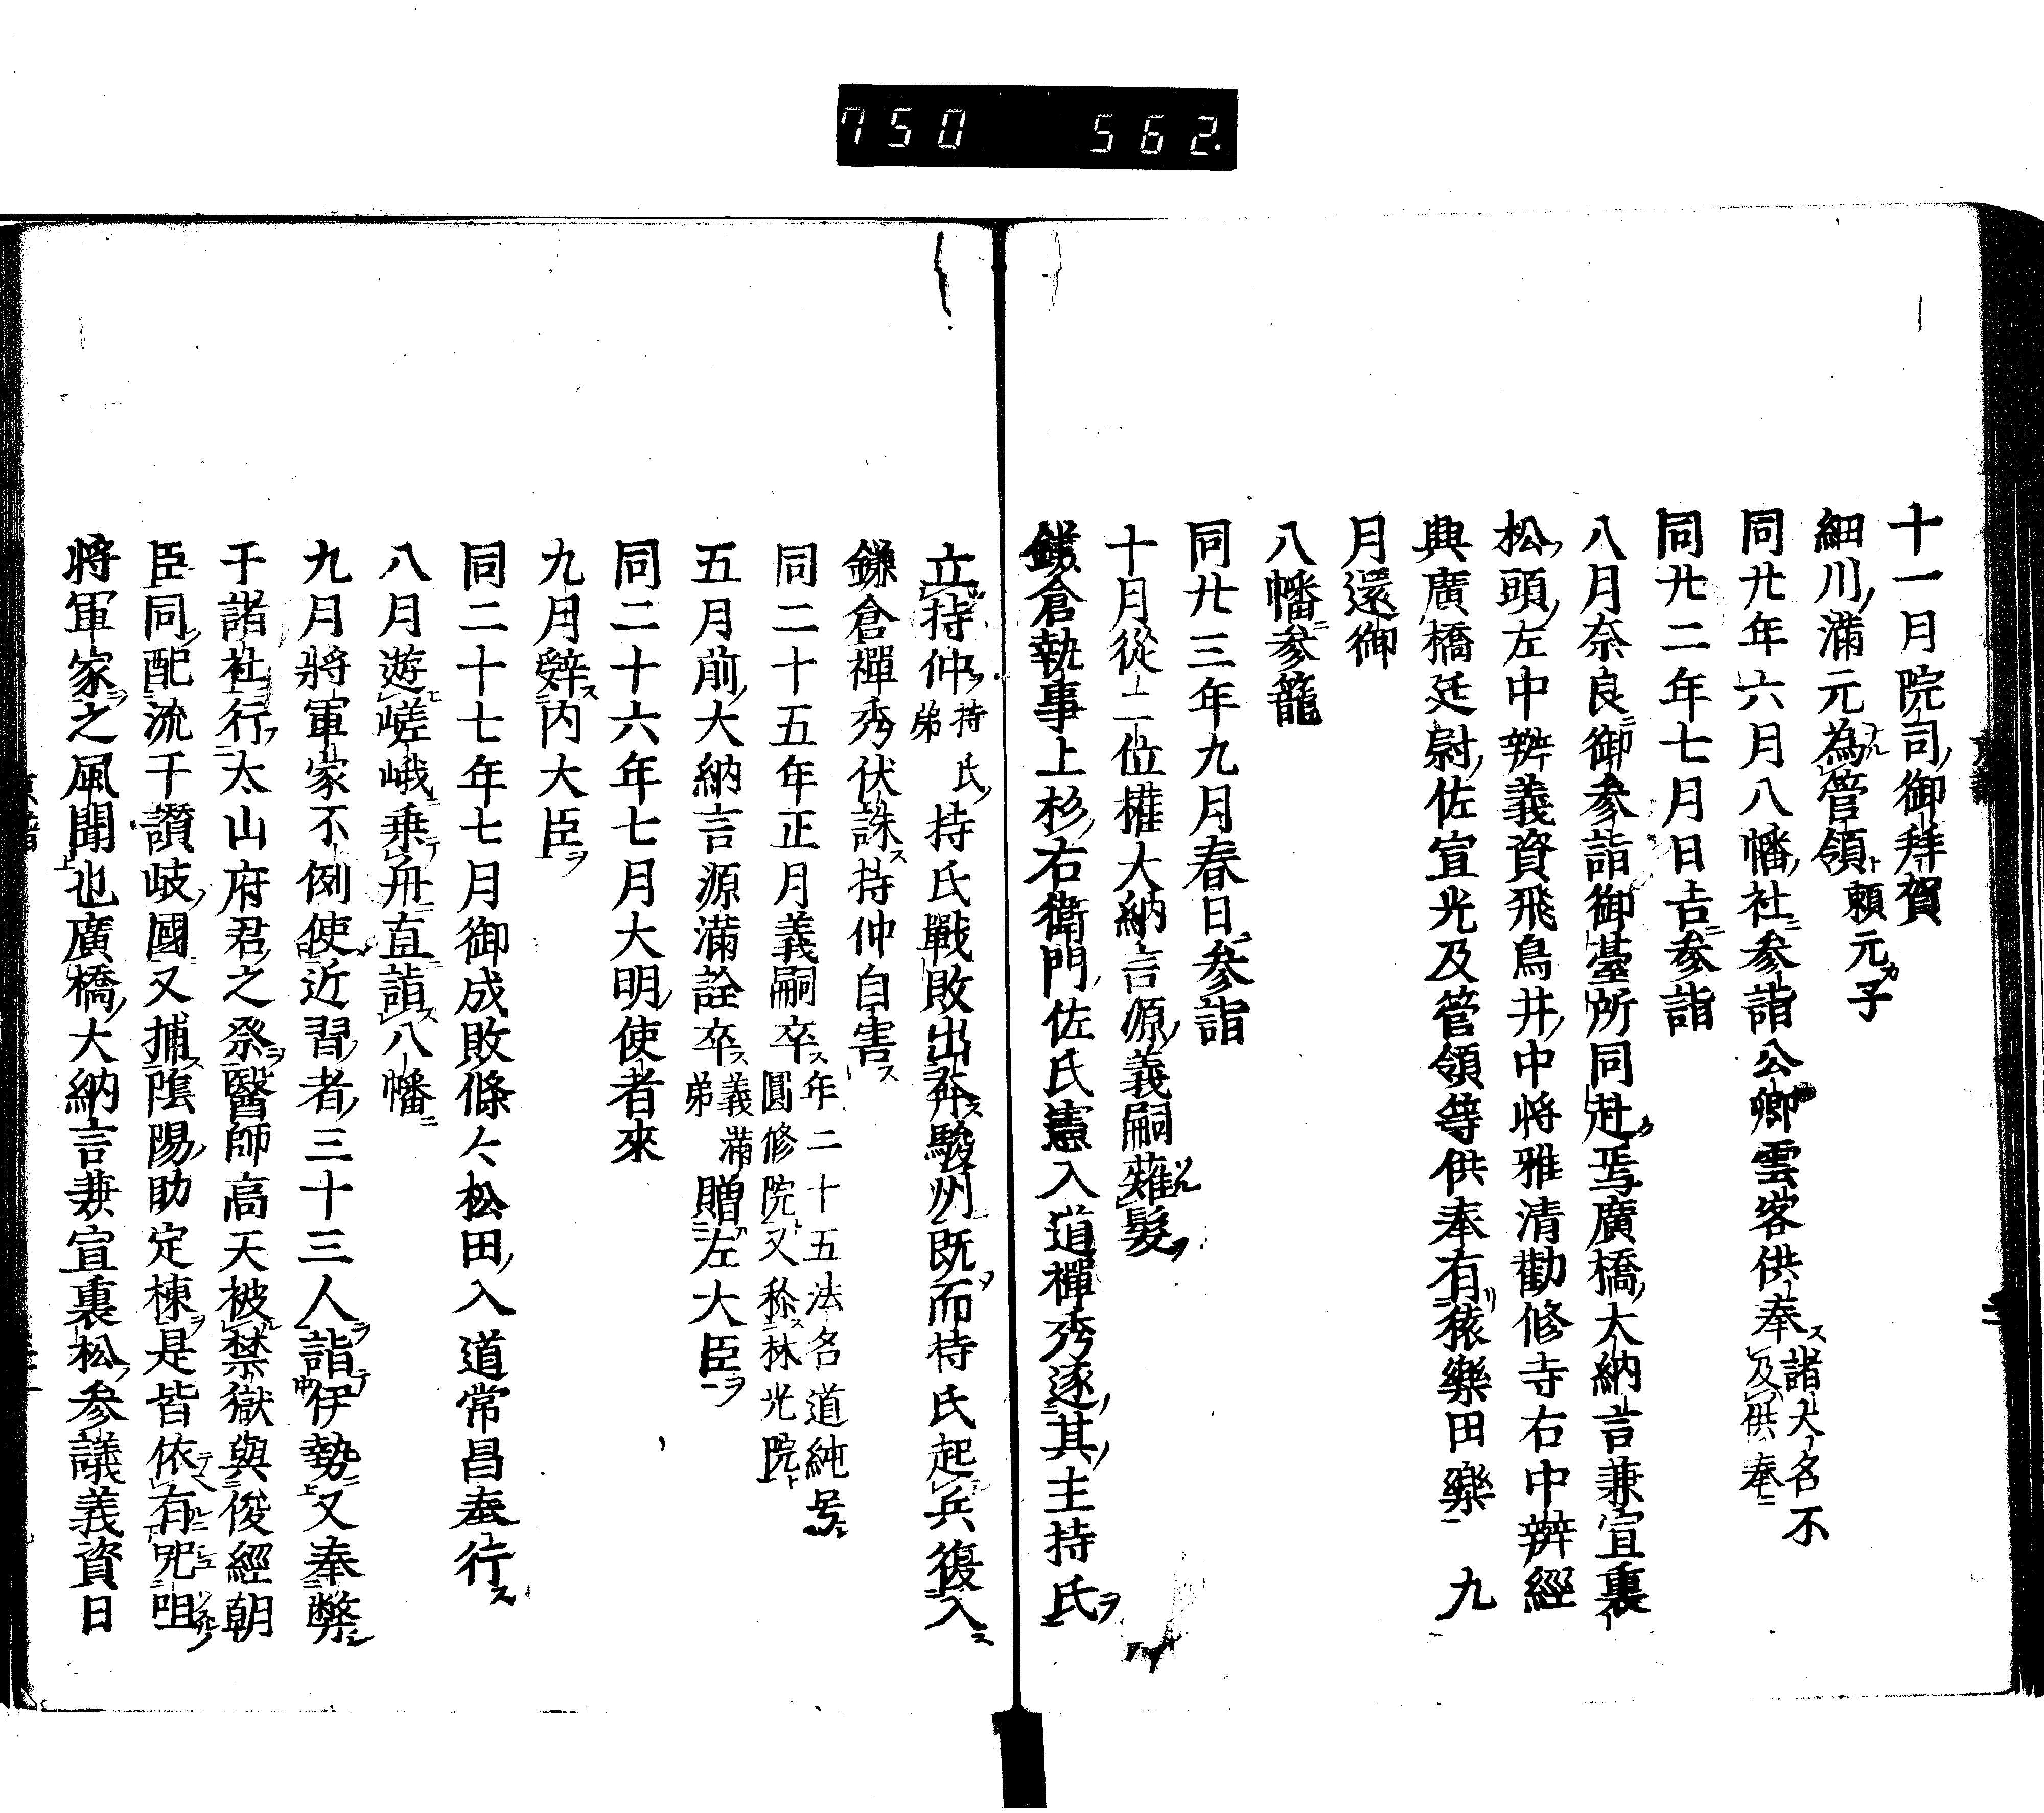 750 562.
十一月院司御拜賀
細川滿元為管領頼元子
同廿年六月八幡社参詣公卿雲客供奉諸大名不及供奉
同廿二年七月日吉参詣
八月奈良御参詣御臺所同赴焉廣橋大納言兼宣裏
松頭左中辨義資飛鳥井中将雅清勸修寺右中辨經
興廣橋廷尉佐宣光及管領等供奉有猿樂田樂 九
月還御
八幡参籠
同廿三年九月春日参詣
十月從二位權大納言源義嗣薙髮
鎌倉執事上杉右衛門佐氏憲入道禪秀逐其主持氏
立持仲持氏弟持氏戰敗出奔駿州既而持氏起兵復入
鎌倉禪秀伏誅持仲自害
同二十五年正月義嗣卒年二十五法名道純号圓修院又称林光院
五月前大納言源滿詮卒義滿弟贈左大臣
同二十六年七月大明使者來
九月辤内大臣
同二十七年七月御成敗條々松田入道常昌奉行
八月遊嵯峨乗舟直詣八幡
九月將軍家不例使近習者三十三人詣伊勢又奉幣
于諸社行太山府君之祭醫師高天被禁獄與俊經朝
臣同配流于讃岐國又捕陰陽助定棟是皆依有咒咀
将軍家之風聞也廣橋大納言兼宣裏松参議義資日